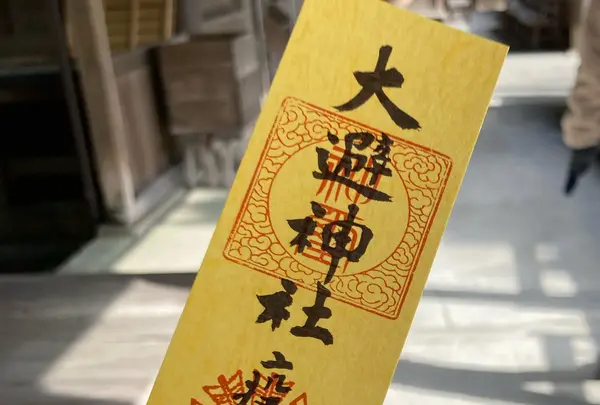 大避神社
疫